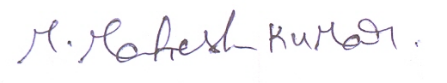 M. Mahesh Kumar.